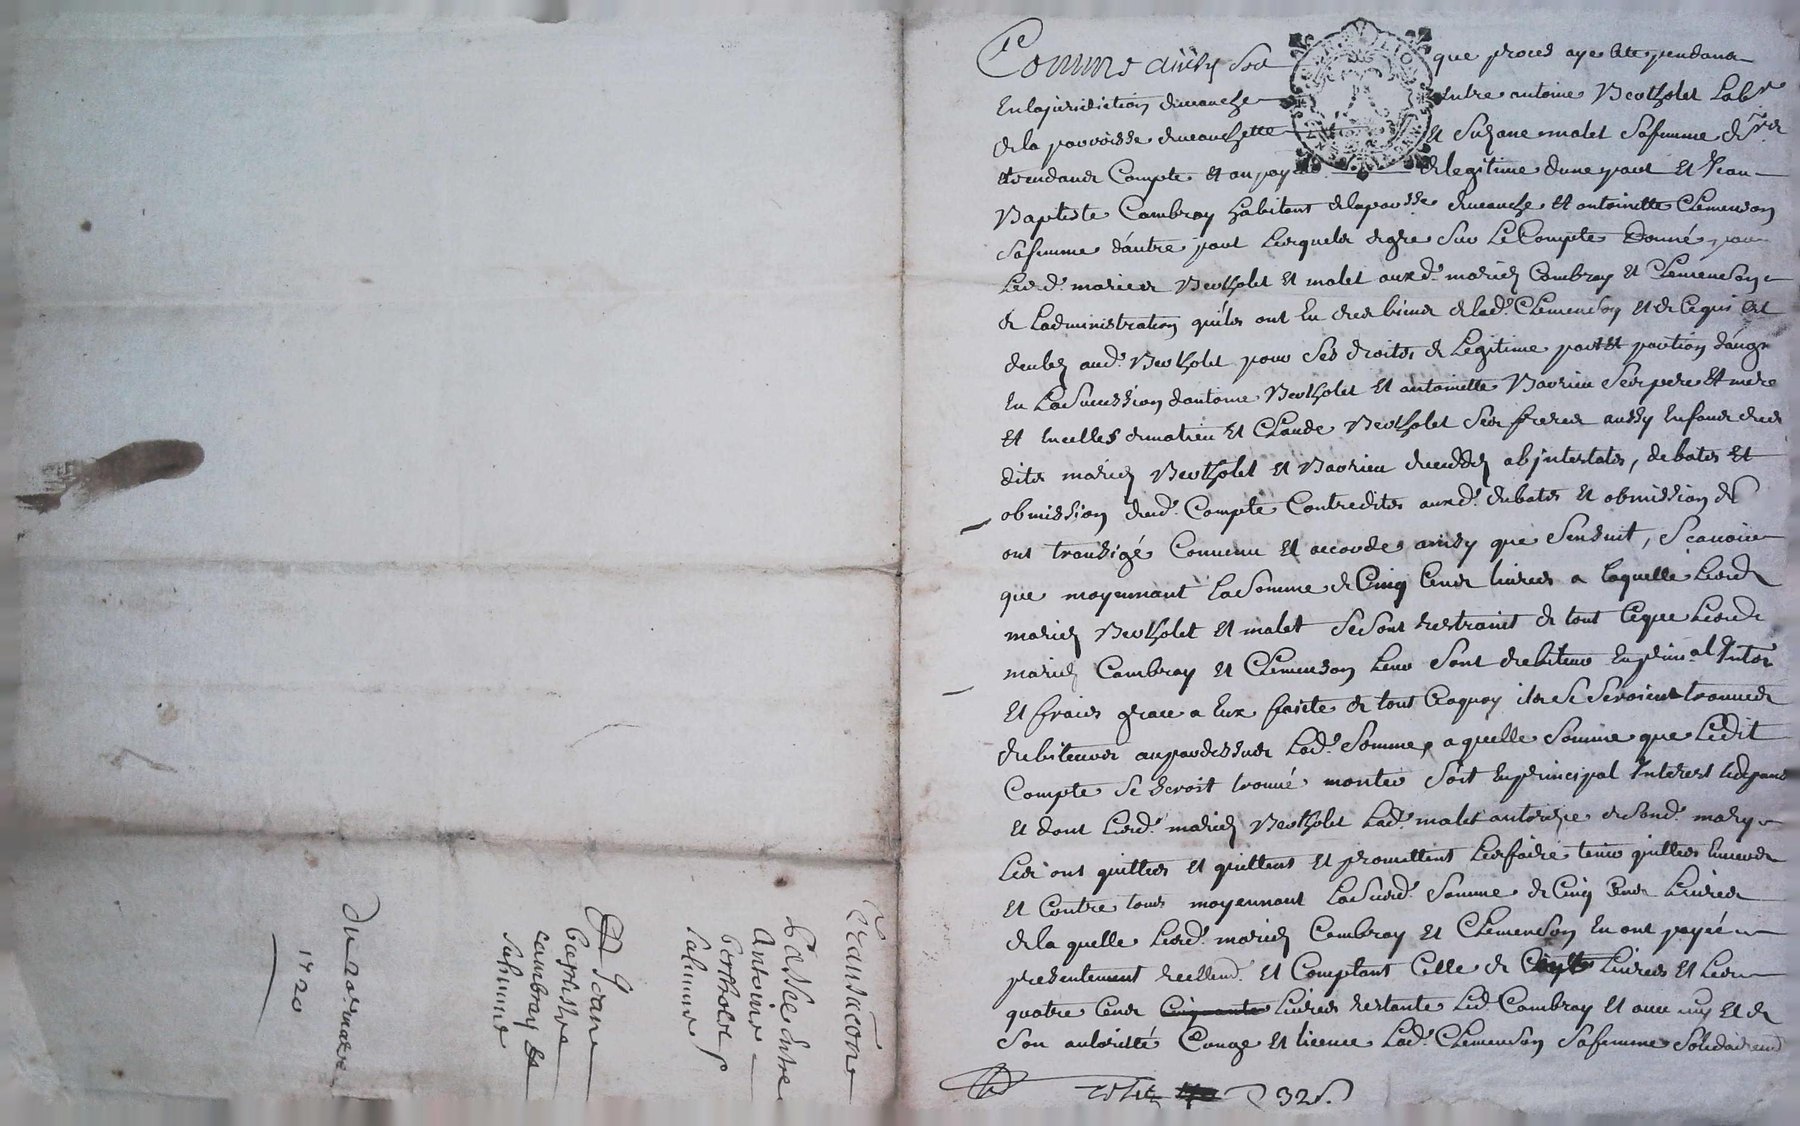 Transaction
passée Entre
Antoine
Bertholet
sa femme
Et Jean
Baptiste
Cambray Et
sa femme
Du 20 mars
1720
Comme ainsy soit que proces aye ete pendant
En la jurisdiction dumanche Entre antoine Bertholet Lab.r
de la parroisse dumanchette Et Suzane malet sa femme
Et rendant Compte Et en paye de legitime dune part Et Jean
Baptiste Cambray habitant de la par.sse dumanche Et antoinette Clemenson
sa femme d'autre part lesquels de gre sur Le Compte Donné par
Lesd. maries Bertholet Et malet auxd. mariez Cambray Et Clemenson
de Ladministration quils ont Eu des biens de lad. Clemenson Et de Cequi Est
deubz aud. Bertholet pour ses droits de Legitime part Et portion
En La Succession dantoine Bertholet Et antoinette Bavrieu Ses pere Et mere
Et En celles de matieu Et Claude Bertholet Ses freres aussy Enfans des
dits mariez Bertholet Et Bavrieu decedez abjntestats, debats Et
obmission dud. Compte Contredits auxd. debats Et obmission
ont transigé Convenu Et accorde ainsy que Sensuit, Scavoir
que moyennant La Somme de Cinq Cens livres a laquelle Lesd.
mariez Bertholet Et malet Se Sont restraint de tout Ceque Lesd.
mariez Cambray Et Clemenson Leur Sont debiteurs En prin.al Interest
Et frais grace a Eux faite de tout Cequoy ils Se Seroient trouves
debiteurs aupardessus Lad. Somme, a quelle Somme que Ledit
Compte Se seroit trouvé monter Soit En principal Interest
Et dont Lesd. mariez Bertholet Lad. malet autorizee de Sond. mary
Les ont quittes Et quittent Et promettent Les faire tenir quittes Envers
Et Contre tous moyennant La Susd. Somme de Cinq Cens Livres
de la quelle Lesd. mariez Cambray Et Clemenson En ont payé
presentement reellem.t Et Comptant Celle de Livres Et Les
quatre Cens Cinquante Livres restante Led. Cambray Et avec luy Et de
Son autorité Conge Et licence Lad. Clemenson Sa femme
32 s.